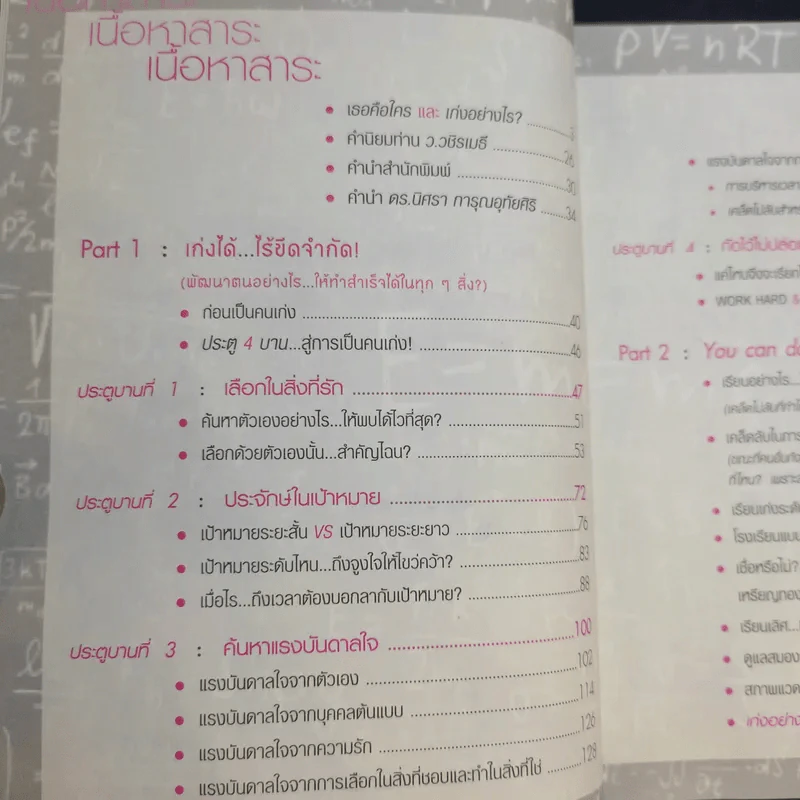 เนื้อหาสาระ
เนื้อหาสาระ
• เธอคือใคร และ เก่งอย่างไร?
• คำนิยมท่าน ว.วชิรเมธี ..........26
• คำนำสำนักพิมพ์ ..........30
• คำนำ ดร.นิศรา การุณอุทัยศิริ ..........34
Part 1 : เก่งได้...ไร้ขีดจำกัด!
(พัฒนาตนอย่างไร...ให้ทำสำเร็จได้ในทุก ๆ สิ่ง?)
• ก่อนเป็นคนเก่ง ..........40
• ประตู 4 บาน...สู่การเป็นคนเก่ง! ..........46
ประตูบานที่ 1 : เลือกในสิ่งที่รัก ..........47
• ค้นหาตัวเองอย่างไร...ให้พบได้ไวที่สุด? ..........51
• เลือกด้วยตัวเองนั้น...สำคัญไฉน? ..........53
ประตูบานที่ 2 : ประจักษ์ในเป้าหมาย ..........72
• เป้าหมายระยะสั้น VS เป้าหมายระยะยาว ..........76
• เป้าหมายระดับไหน...ถึงจูงใจให้ไขว่คว้า? ..........83
• เมื่อไร...ถึงเวลาต้องบอกลากับเป้าหมาย? ..........88
ประตูบานที่ 3 : ค้นหาแรงบันดาลใจ ..........100
• แรงบันดาลใจจากตัวเอง ..........102
• แรงบันดาลใจจากบุคคลต้นแบบ ..........114
• แรงบันดาลใจจากความรัก ..........126
• แรงบันดาลใจจากการเลือกในสิ่งที่ชอบและทำในสิ่งที่ใช่ ..........128
PV=nRT
• แรงบันดาลใจจาก
• การบริหารเวลา
• เคล็ดไม่ลับสำหรั
ประตูบานที่ 4 : กัดไว้ไม่ปล่อย
• แค่ไหนจึงจะเรียก
• WORK HARD &
Part 2 : You can do
• เรียนอย่างไร...
(เคล็ดไม่ลับที่ทำใ
• เคล็ดลับในการ
(ขณะที่คนอื่น
ที่ไหน? เพราะ
• เรียนเก่งระดับ
• โรงเรียนแบบ
• เชื่อหรือไม่?
เหรียญทอง
• เรียนเลิศ...
• ดูแลสมอง
• สภาพแวด
• เก่งอย่าง